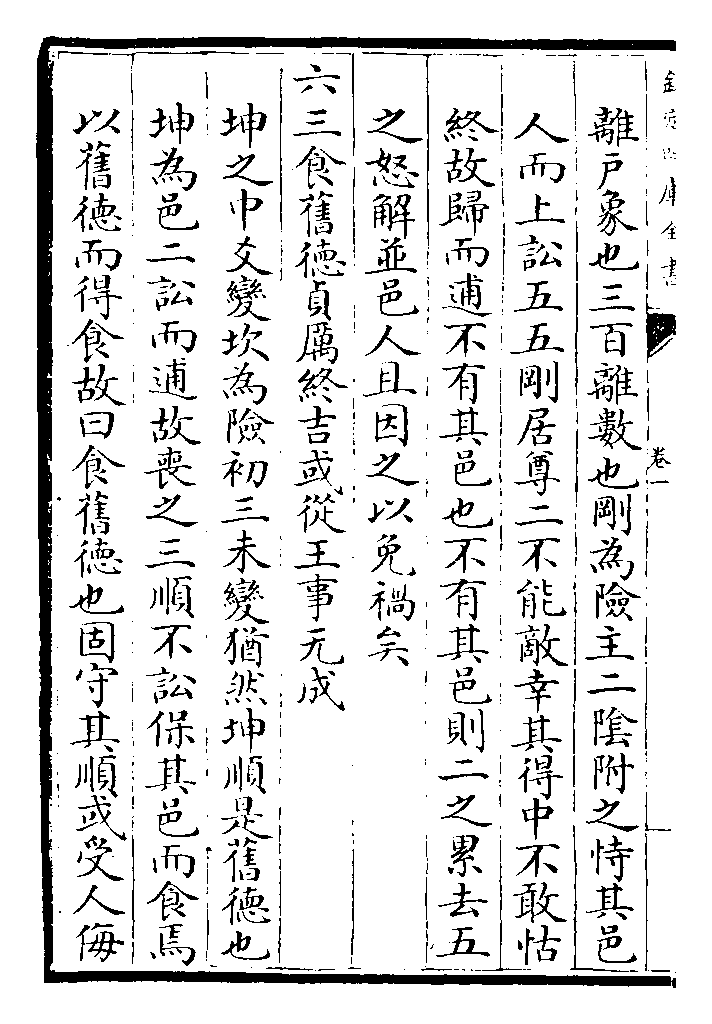 欽定四庫全書
卷一
離戸象也三百離數也剛為險主二陰附之恃其邑
人而上訟五五剛居尊二不能敵幸其得中不敢怙
終故歸而逋不有其邑也不有其邑則二之累去五
之怒解並邑人且因之以免禍矣
六三食舊徳貞厲終吉或從王事无成
坤之中爻變坎為險初三未變猶然坤順是舊徳也
坤為邑二訟而逋故喪之三順不訟保其邑而食焉
以舊徳而得食故曰食舊徳也固守其順或受人侮